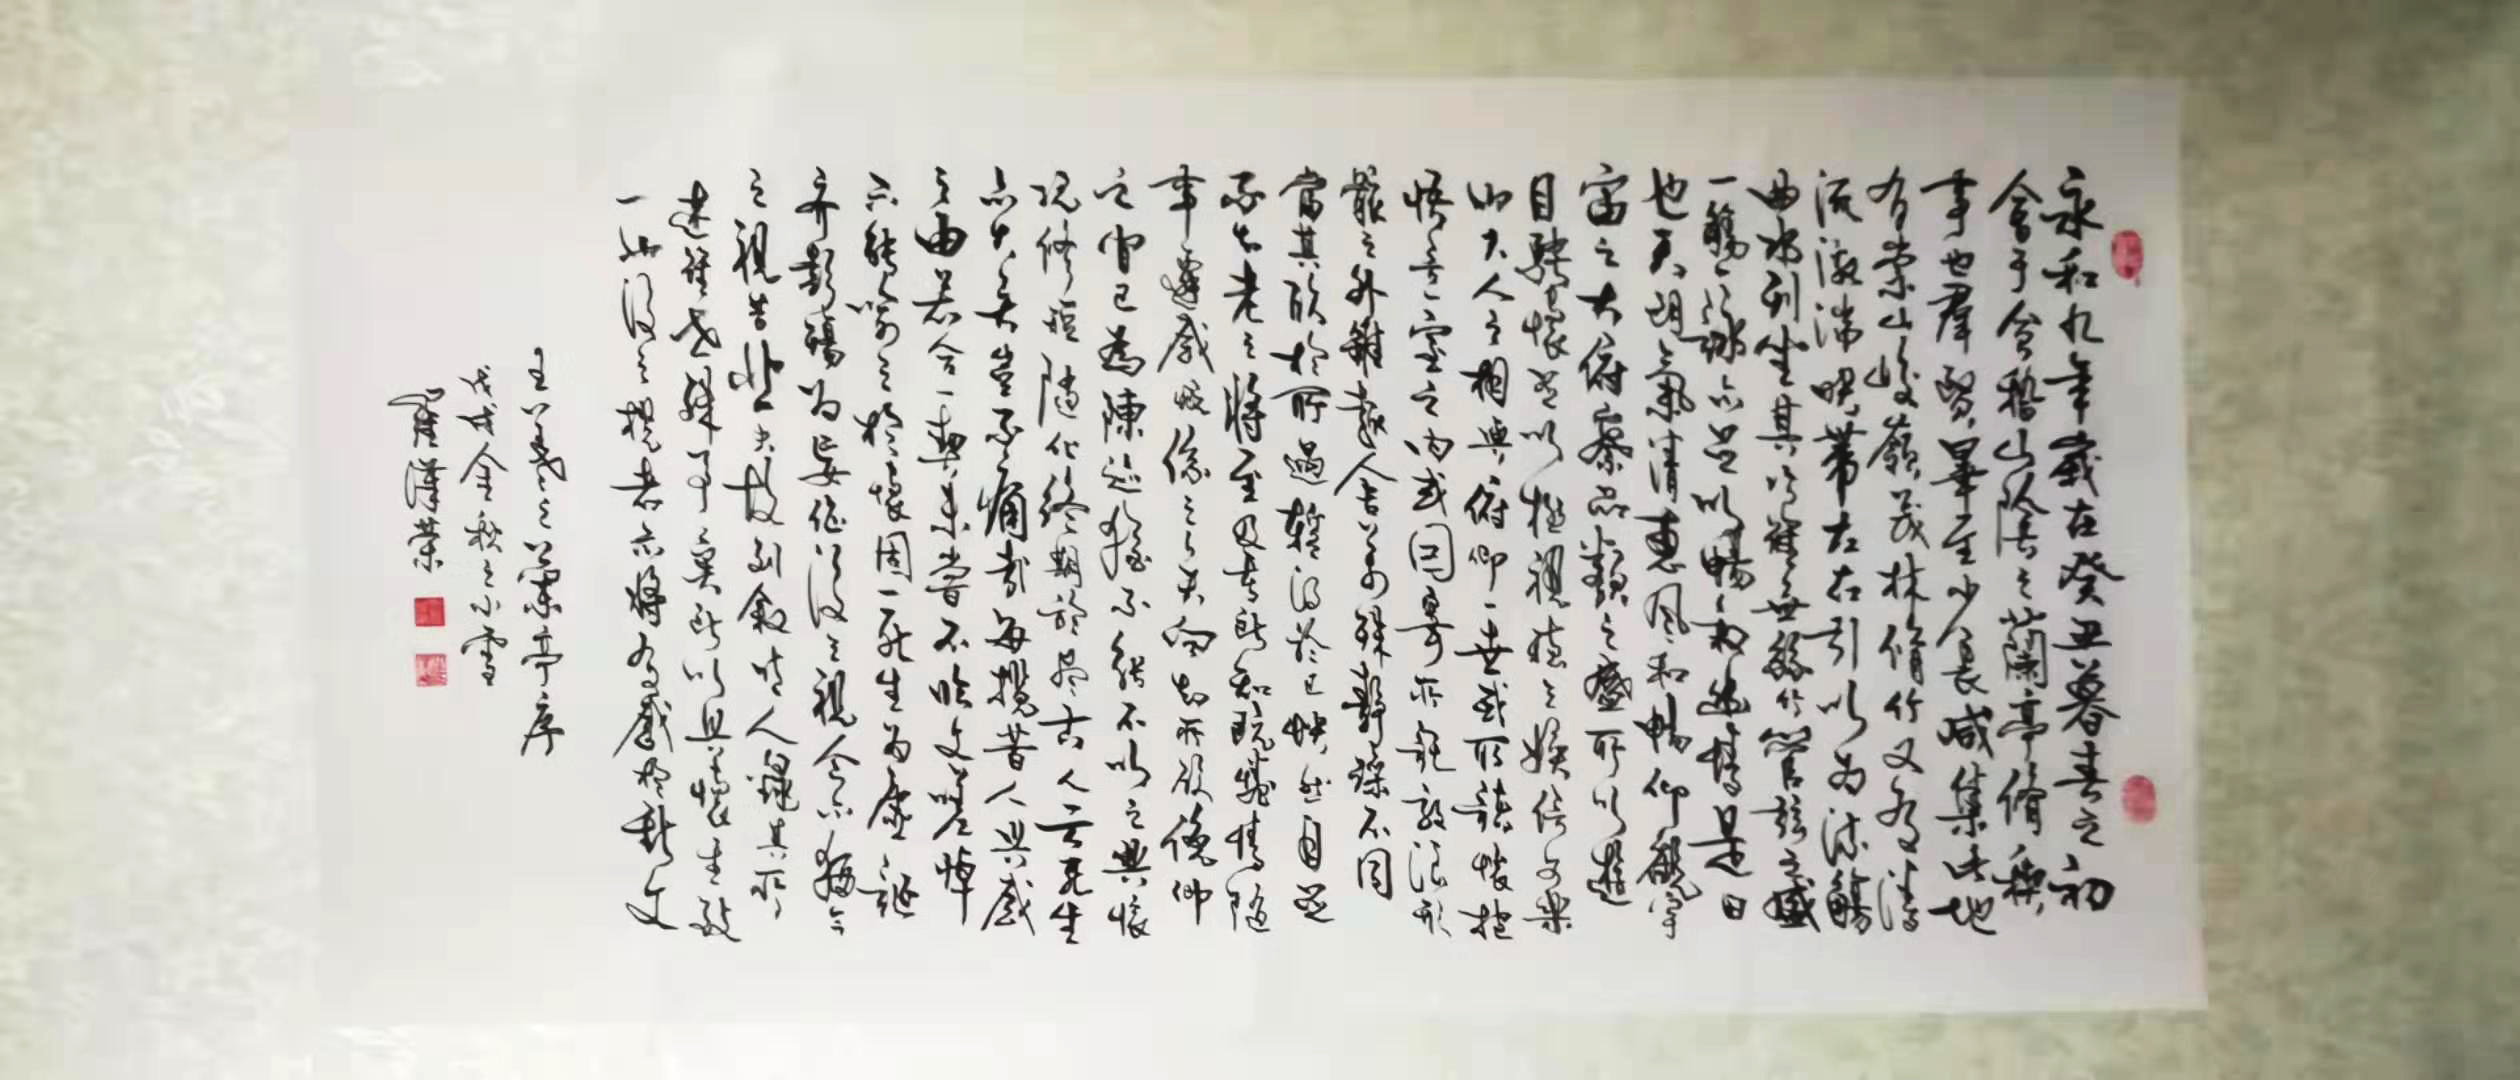 永和九年歲在癸丑暮春之初
會于會稽山陰之蘭亭脩禊
事也群賢畢至少長咸集此地
有崇山峻嶺茂林脩竹又有清
流激湍映帶左右引以為流觴
曲水列坐其次雖無絲竹管弦之盛
一觴一詠亦足以暢敘幽情是日
也天朗氣清惠風和暢仰觀宇
宙之大俯察品類之盛所以遊
目騁懷足以極視聽之娛信可樂
也夫人之相與俯仰一世或取諸懷抱
悟言一室之內或因寄所託放浪形
骸之外雖趣舍萬殊靜躁不同
當其欣於所遇暫得於己快然自足
不知老之將至及其所之既惓情隨
事遷感慨係之矣向之所欣俛仰
之間已為陳迹猶不能不以之興懷
況修短隨化終期於盡古人云死生
亦大矣豈不痛哉每攬昔人興感
之由若合一契未嘗不臨文嗟悼
不能喻之於懷固一死生為虛誕
齊彭殤為妄作後之視今亦猶今
之視昔悲夫故列敘時人錄其所
述雖世殊事異所以興懷其致
一也後之攬者亦將有感於斯文
王羲之蘭亭序
戊戌金秋之小雪
羅漢榮